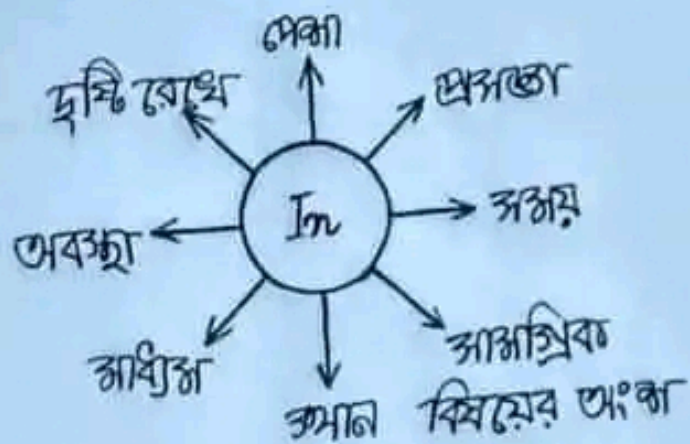 পেশা
প্রসঙ্গ
সময়
সামগ্রিক
বিষয়ের অংশ
স্থান
মাধ্যম
অবস্থা
দৃষ্টি রেখে
In